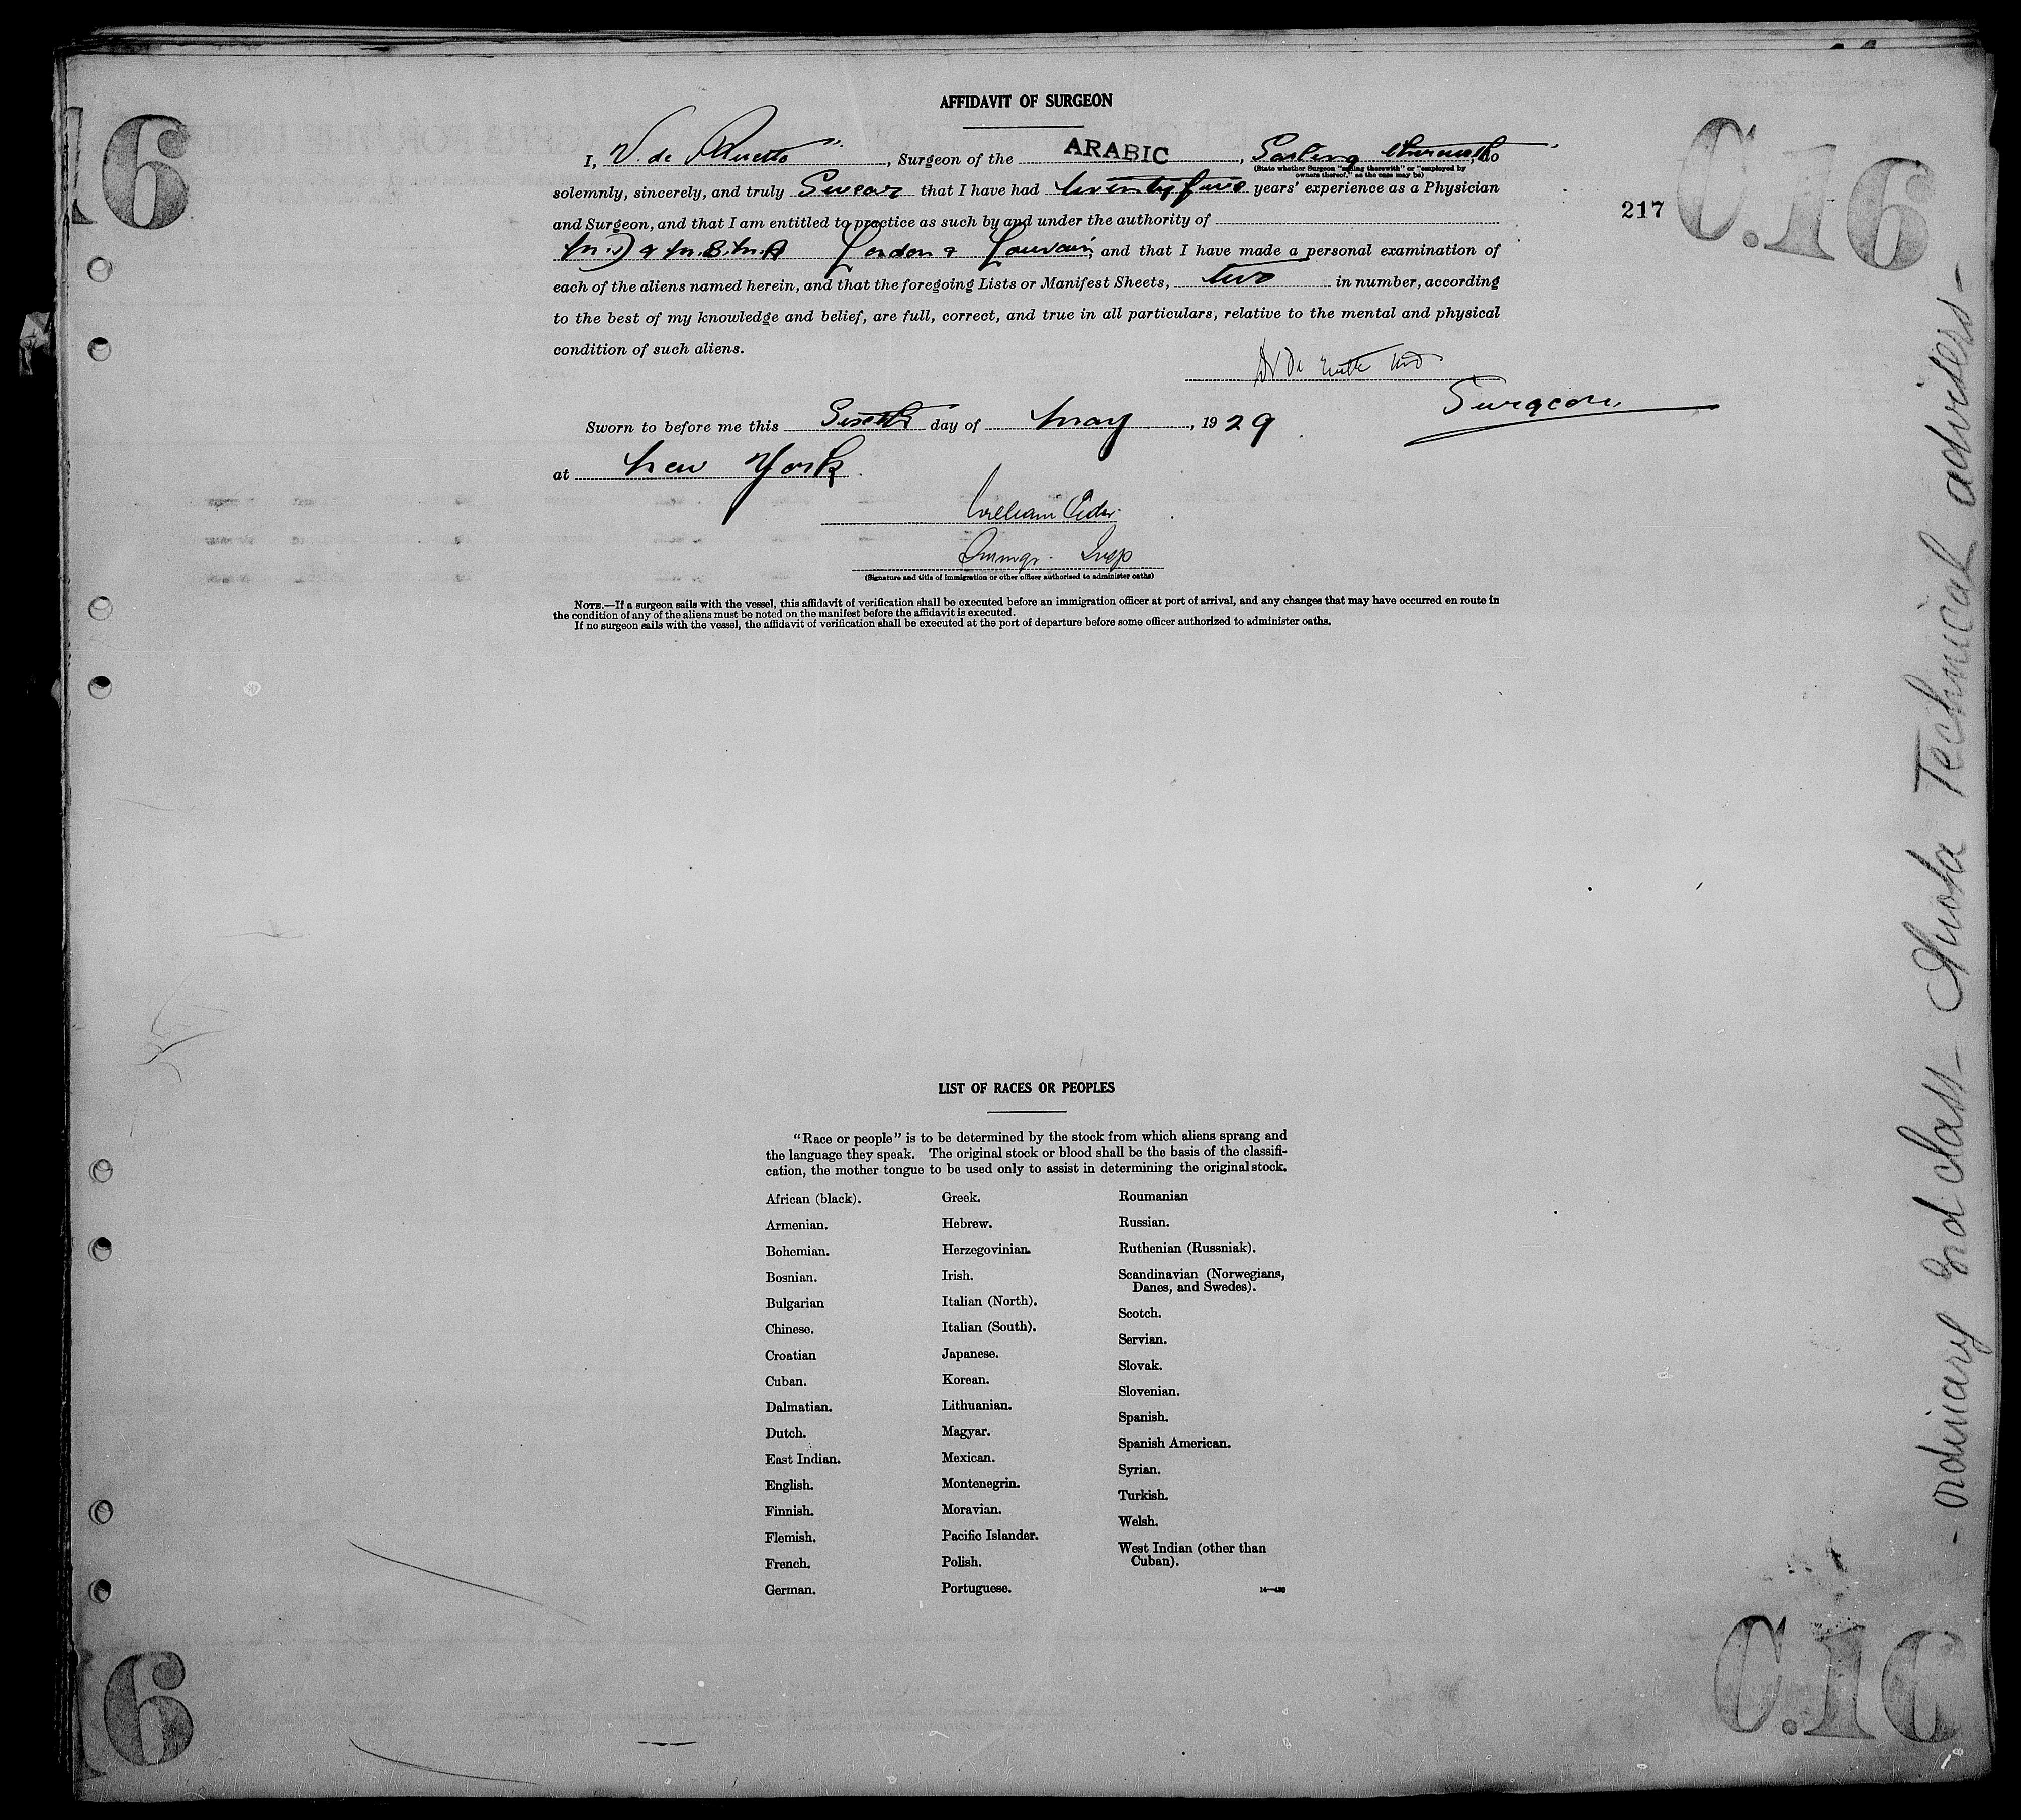 AFFIDAVIT OF SURGEON
16
C.16
I, V. de , Surgeon of the ARABIC, Sailing therewith, do
(State whether Surgeon "sailing therewith" or "employed by
owners thereof," as the case may be)
solemnly, sincerely, and truly Swear that I have had twenty five years' experience as a Physician
and Surgeon, and that I am entitled to practice as such by and under the authority of
217
London & Louvain, and that I have made a personal examination of
each of the aliens named herein, and that the foregoing Lists or Manifest Sheets, two in number, according
to the best of my knowledge and belief, are full, correct, and true in all particulars, relative to the mental and physical
condition of such aliens.
Surgeon.
Sworn to before me this Sixth day of May, 1929.
at New York.
William
Immgr. Insp
(Signature and title of immigration or other officer authorized to administer oaths)
NOTE.—If a surgeon sails with the vessel, this affidavit of verification shall be executed before an immigration officer at port of arrival, and any changes that may have occurred en route in
the condition of any of the aliens must be noted on the manifest before the affidavit is executed.
If no surgeon sails with the vessel, the affidavit of verification shall be executed at the port of departure before some officer authorized to administer oaths.
- ordinary 3rd class - Quota Technical advisers -
LIST OF RACES OR PEOPLES
"Race or people" is to be determined by the stock from which aliens sprang and
the language they speak. The original stock or blood shall be the basis of the classifi-
cation, the mother tongue to be used only to assist in determining the original stock.
African (black).
Armenian.
Bohemian.
Bosnian.
Bulgarian
Chinese.
Croatian
Cuban.
Dalmatian.
Dutch.
East Indian.
English.
Finnish.
Flemish.
French.
German.
Greek.
Hebrew.
Herzegovinian.
Irish.
Italian (North).
Italian (South).
Japanese.
Korean.
Lithuanian.
Magyar.
Mexican.
Montenegrin.
Moravian.
Pacific Islander.
Polish.
Portuguese.
Roumanian
Russian.
Ruthenian (Russniak).
Scandinavian (Norwegians,
Danes, and Swedes).
Scotch.
Servian.
Slovak.
Slovenian.
Spanish.
Spanish American.
Syrian.
Turkish.
Welsh.
West Indian (other than
Cuban).
16
C.16